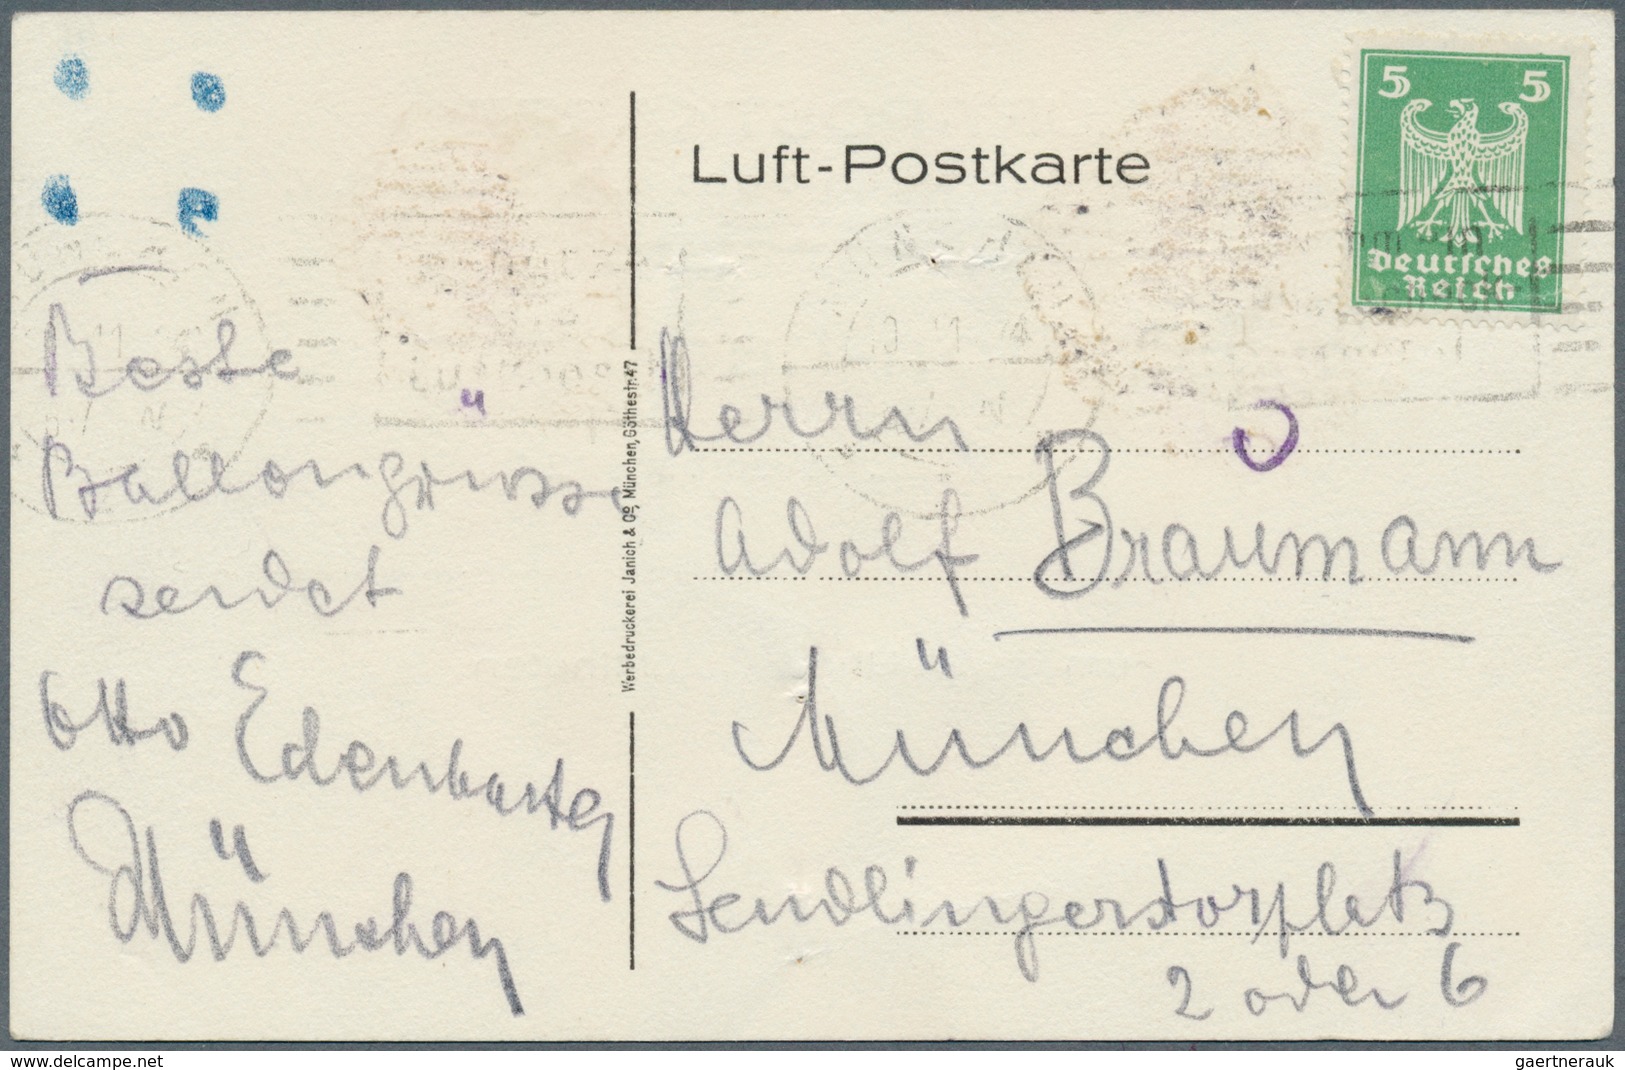 Luft-Postkarte
5 5
Deutsches
Reich
Beste
Ballongrüsse
sendet
Otto Edenharter
München
Werbedruckerei Janich & Co, München, Göthestr. 47
Herrn
Adolf Braumann
München
Sendlingertorplatz
2 oder 6
www.delcampe.net
gaertnerauk